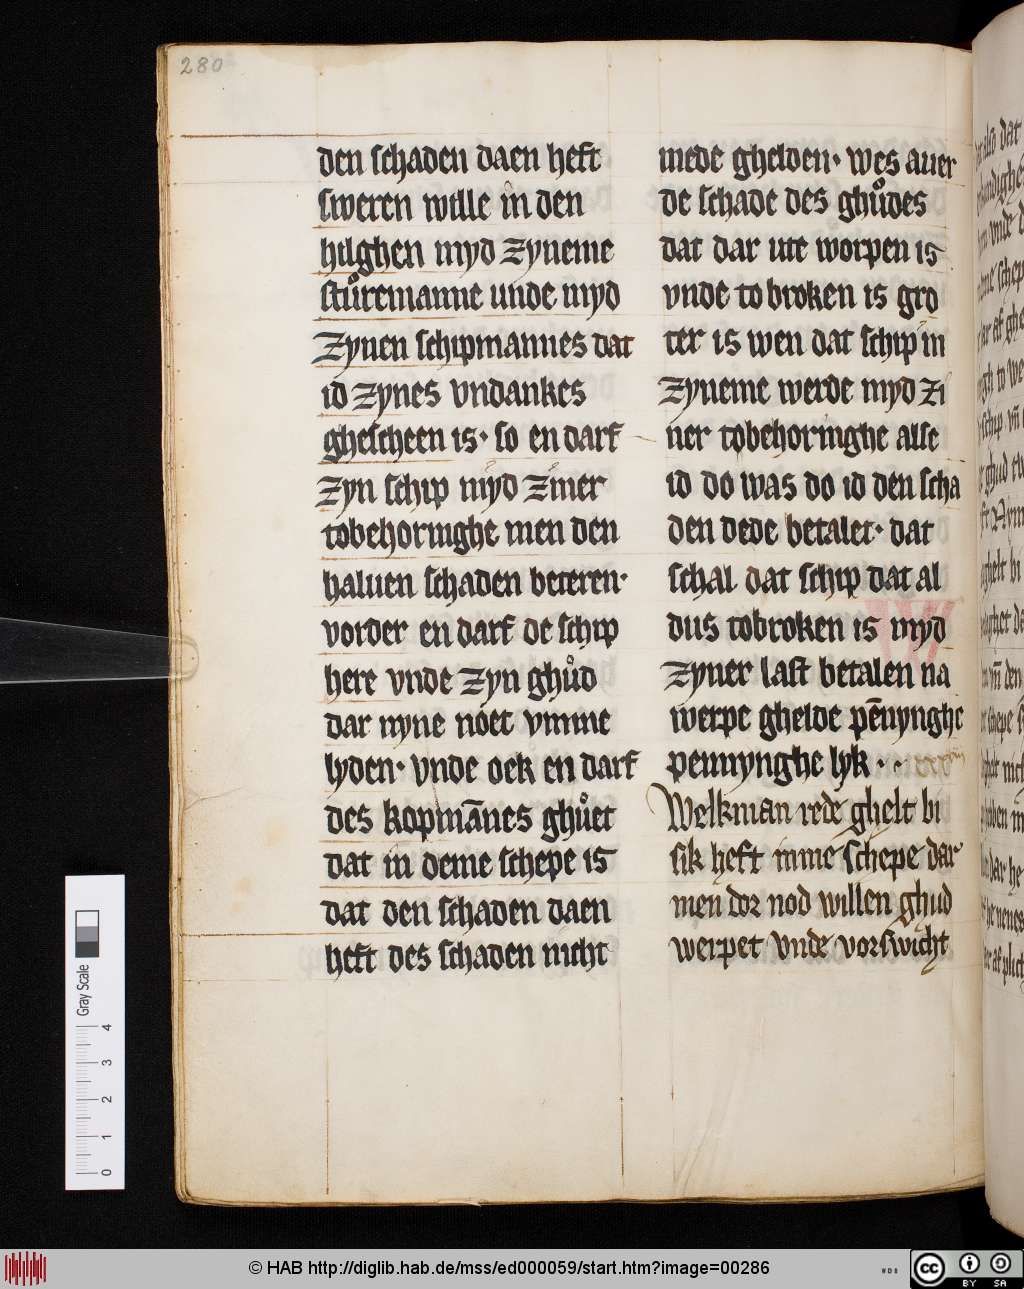 280
den schaden daen heft
sweren wille in den
hilghen myd zyneme
stůremanne unde myd
zynen schipmannes dat
id zynes vndankes
ghescheen is· so en darf
zyn schip myd ziner
tobehoringhe men den
haluen schaden beteren·
vorder en darf de schip
here vnde zyn ghůd
dar nyne noet vmme
lyden· vnde oek en darf
des kopmānes ghůet
dat in deme schepe is
dat den schaden daen
heft des schaden nicht
mede ghelden· wes auer
de schade des ghůdes
dat dar ute worpen is
vnde to broken is gro
ter is wen dat schip in
zyneme werde myd zi
ner tobehoringhe alse
id do was do id den scha
den dede betalet· dat
schal dat schip dat al
dus tobroken is myd
zyner last betalen na
werpe ghelde pēnynghe
pennynghe lyk ·
Welkman rede ghelt bi
sik heft inme schepe dar
men dor nod willen ghud
werpet vnde vorswicht
Gray Scale
0 1 2 3 4
© HAB http://diglib.hab.de/mss/ed000059/start.htm?image=00286
WDB
cc BY SA